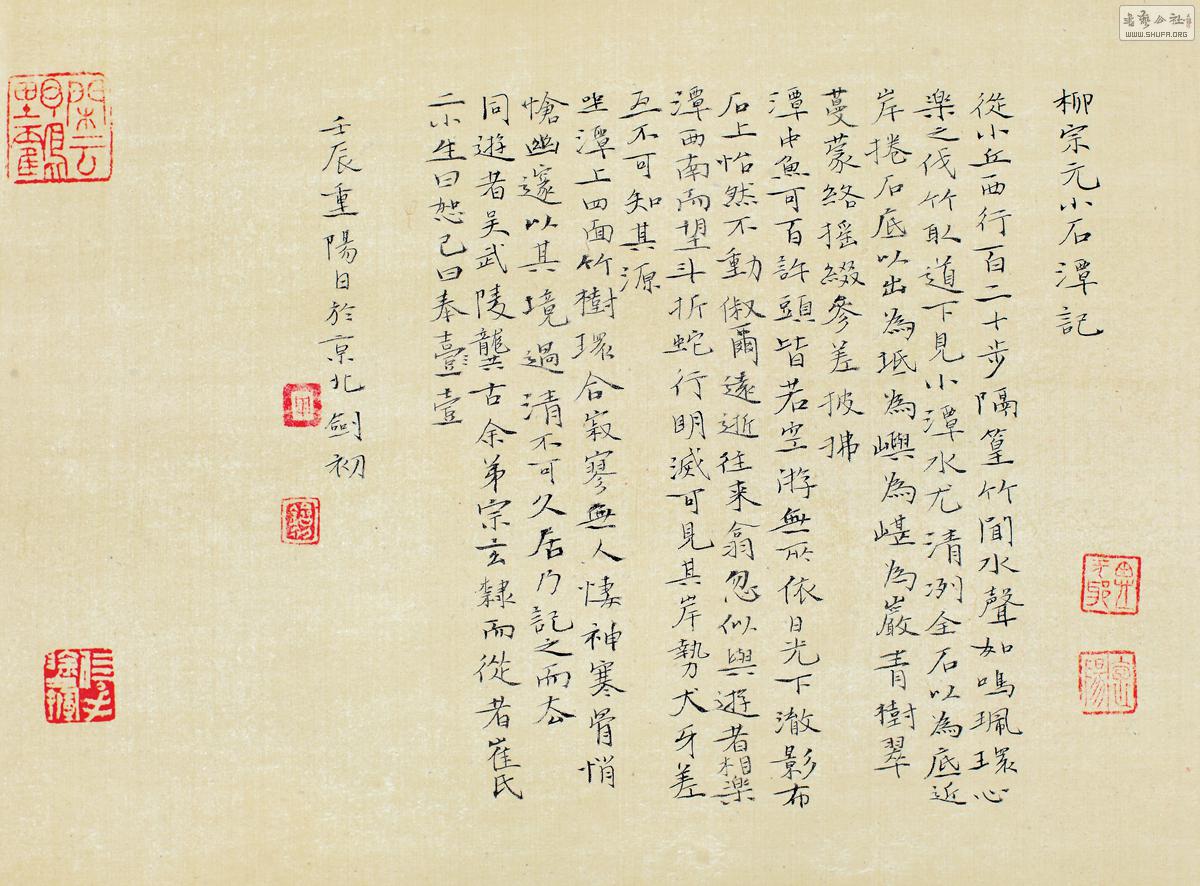 柳宗元小石潭記
從小丘西行百二十步隔篁竹聞水聲如鳴珮環心
樂之伐竹取道下見小潭水尤清冽全石以為底近
岸捲石底以出為坻為嶼為嵁為巖青樹翠
蔓蒙絡搖綴參差披拂
潭中魚可百許頭皆若空游無所依日光下澈影布
石上怡然不動俶爾遠逝往來翕忽似與遊者相樂
潭西南而望斗折蛇行明滅可見其岸勢犬牙差
互不可知其源
坐潭上四面竹樹環合寂寥無人悽神寒骨悄
愴幽邃以其境過清不可久居乃記之而去
同遊者吳武陵龔古余弟宗玄隸而從者崔氏
二小生曰恕己曰奉壹壹
壬辰重陽日於京北劍初
閑云野鶴
書藝公社
WWW.SHUFA.ORG